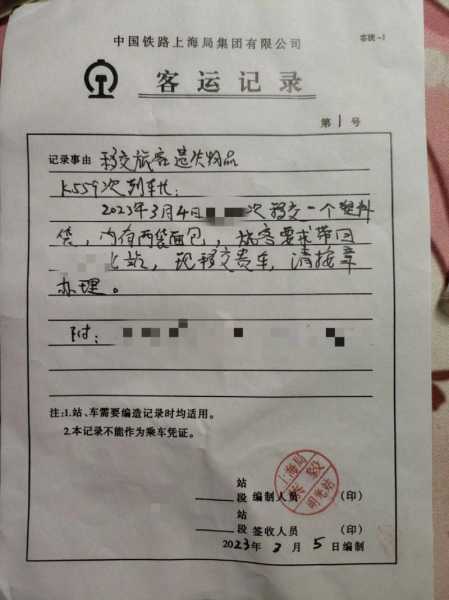 中国铁路上海局集团有限公司
客统-1
客运记录
第 1 号
记录事由 移交旅客遗失物品
K559次列车长:
2023年3月4日 次移交一个塑料
袋,内有两袋面包,旅客要求带回
站,现移交贵车,请按章
办理。
附:
注:1.站、车需要编造记录时均适用。
2.本记录不能作为乘车凭证。
站
段 编制人员 (印)
站
段 签收人员 (印)
2023年 3月 5日编制
上海局
明光站